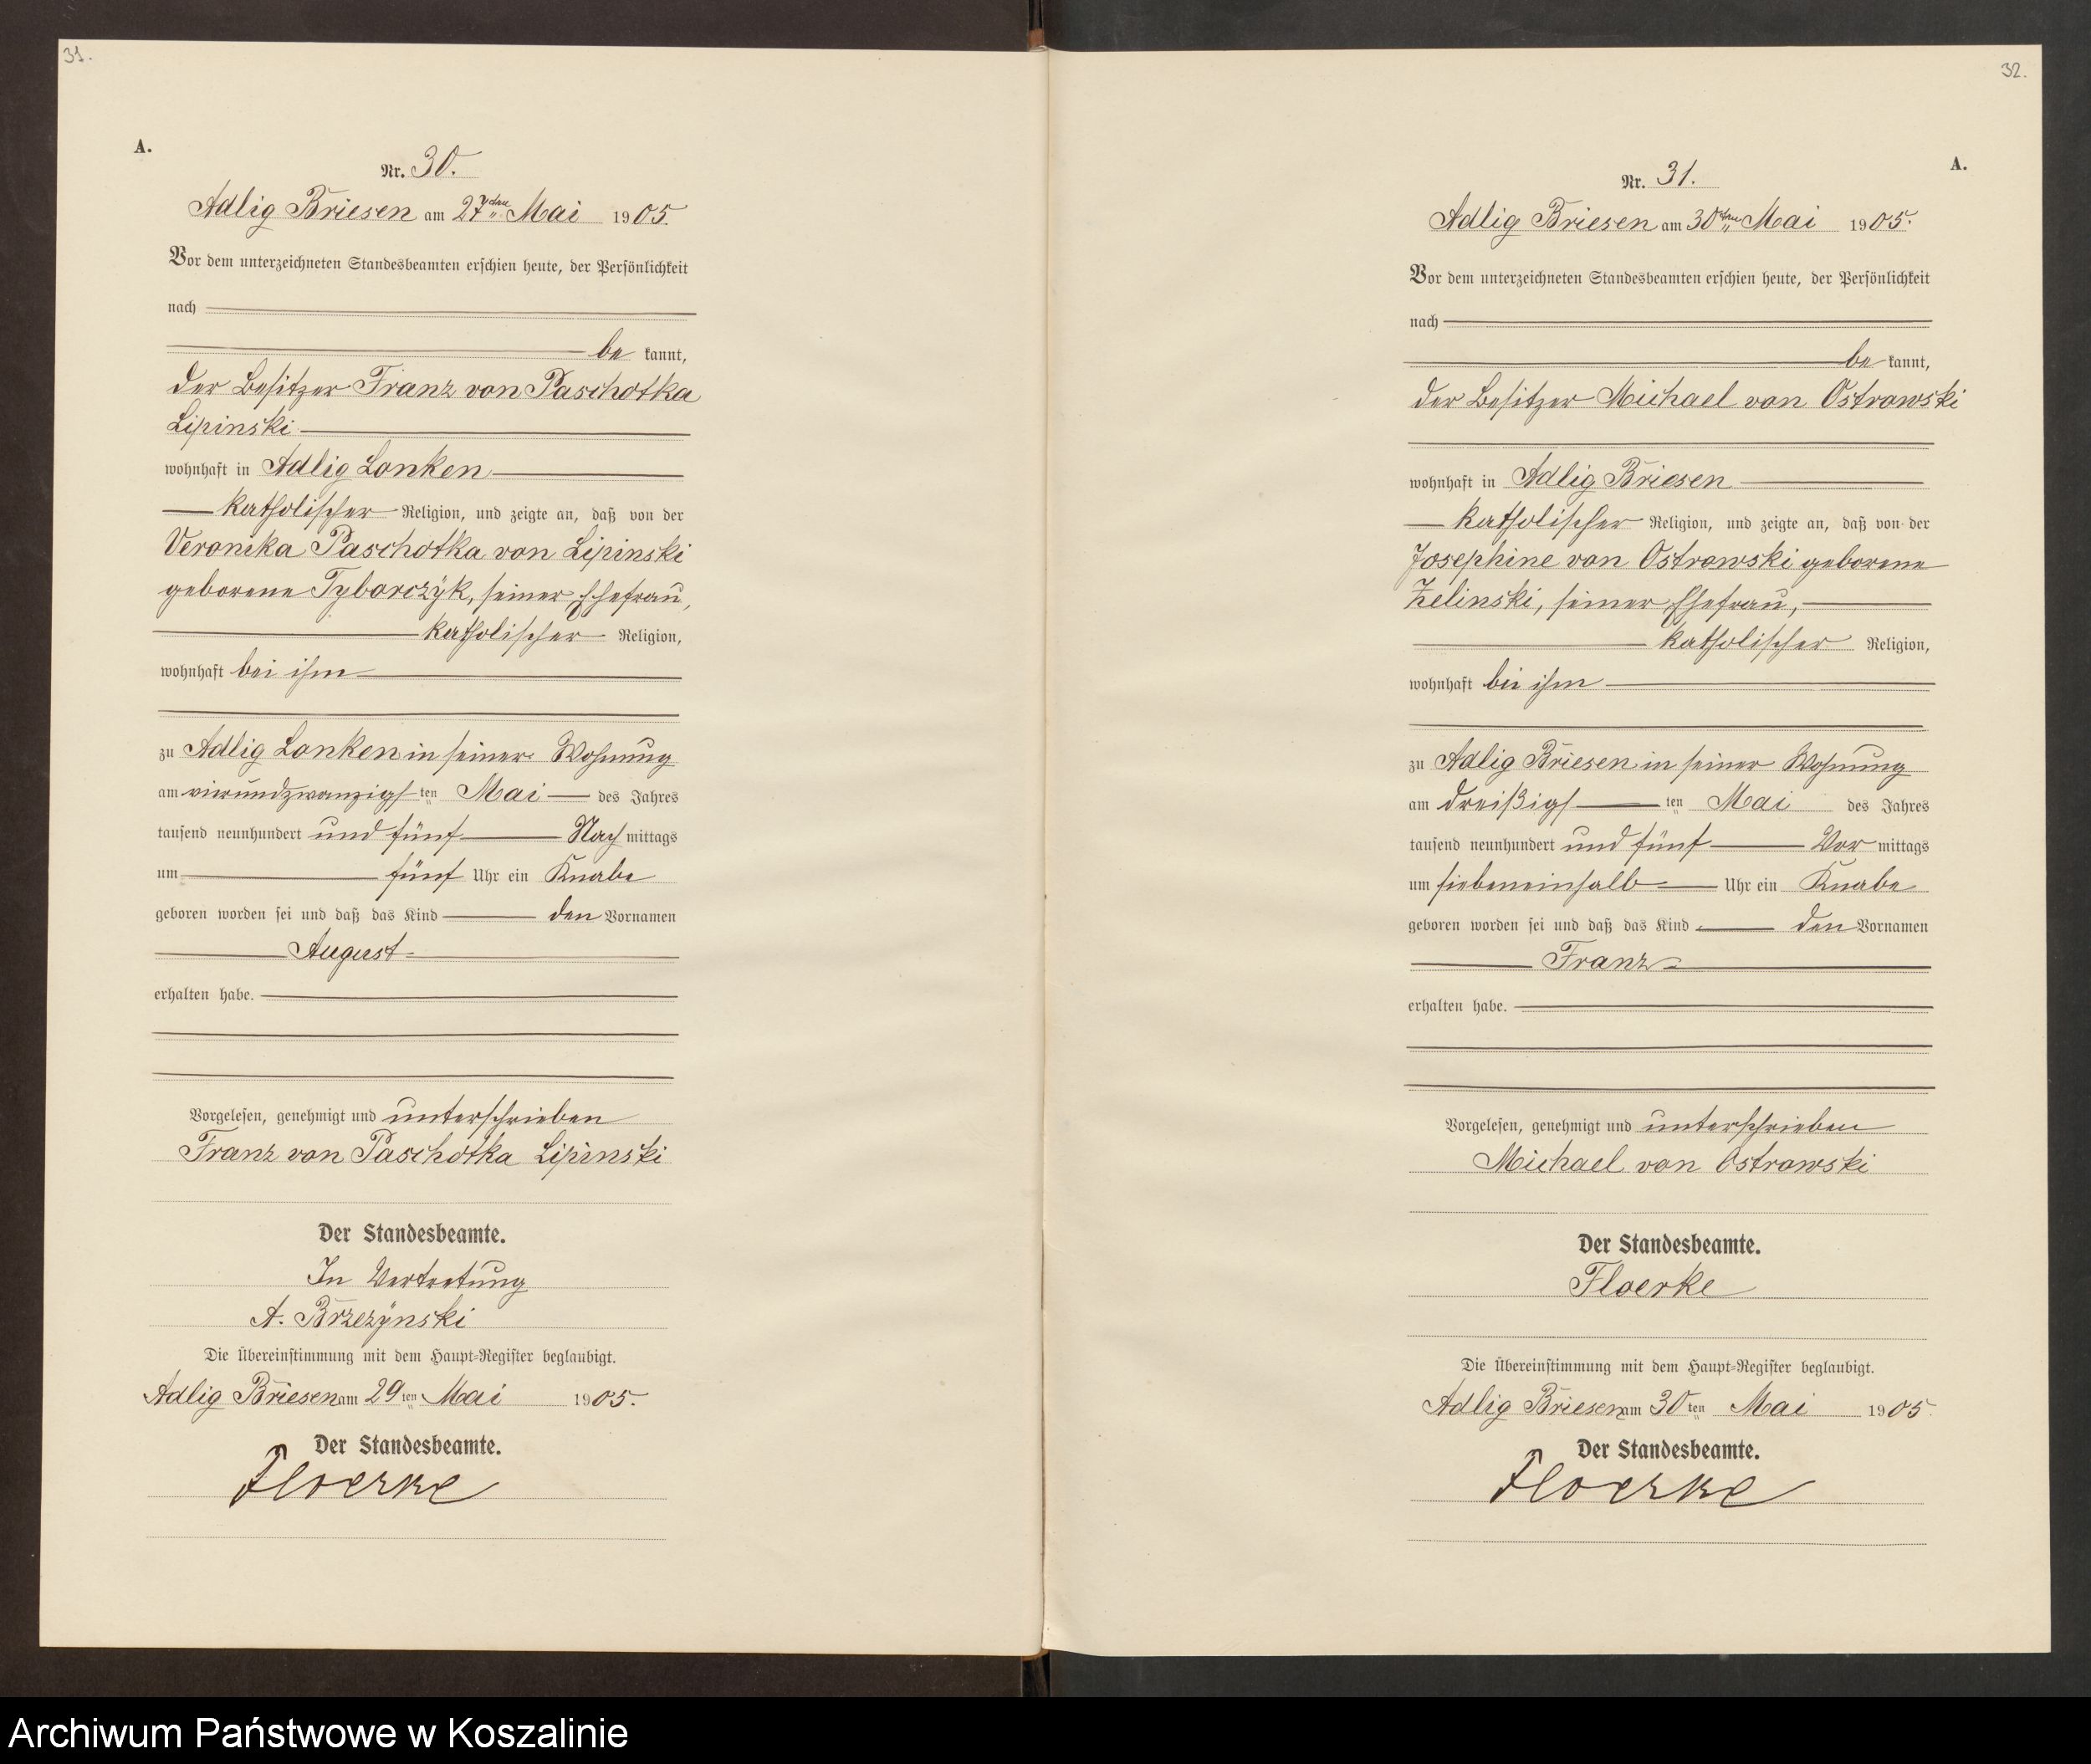 31.
A.
Nr. 30.
Adlig Briesen am 27ten Mai 1905.
Vor dem unterzeichneten Standesbeamten erschien heute, der Persönlichkeit
nach
be kannt,
der Besitzer Franz von Paschotka
Lipinski
wohnhaft in Adlig Lonken
katholischer Religion, und zeigte an, daß von der
Veronika Paschotka von Lipinski
geborene Tyborczÿk, seiner Ehefrau,
katholischer Religion,
wohnhaft bei ihm
zu Adlig Lonken in seiner Wohnung
am vierundzwanzigsten Mai des Jahres
tausend neunhundert und fünf Nachmittags
um fünf Uhr ein Knabe
geboren worden sei und daß das Kind den Vornamen
August
erhalten habe.
Vorgelesen, genehmigt und unterschrieben
Franz von Paschotka Lipinski
Der Standesbeamte.
In Vertretung
A. Brzezÿnski
Die Übereinstimmung mit dem Haupt-Register beglaubigt.
Adlig Briesen am 29ten Mai 1905.
Der Standesbeamte.
Floerke
32.
A.
Nr. 31.
Adlig Briesen am 30ten Mai 1905.
Vor dem unterzeichneten Standesbeamten erschien heute, der Persönlichkeit
nach
be kannt,
der Besitzer Michael von Ostrowski
wohnhaft in Adlig Briesen
katholischer Religion, und zeigte an, daß von der
Josephine von Ostrowski geborene
Zelinski, seiner Ehefrau,
katholischer Religion,
wohnhaft bei ihm
zu Adlig Briesen in seiner Wohnung
am dreißigsten Mai des Jahres
tausend neunhundert und fünf Vormittags
um siebeneinhalb Uhr ein Knabe
geboren worden sei und daß das Kind den Vornamen
Franz
erhalten habe.
Vorgelesen, genehmigt und unterschrieben
Michael von Ostrowski
Der Standesbeamte.
Floerke
Die Übereinstimmung mit dem Haupt-Register beglaubigt.
Adlig Briesen am 30ten Mai 1905
Der Standesbeamte.
Floerke
Archiwum Państwowe w Koszalinie